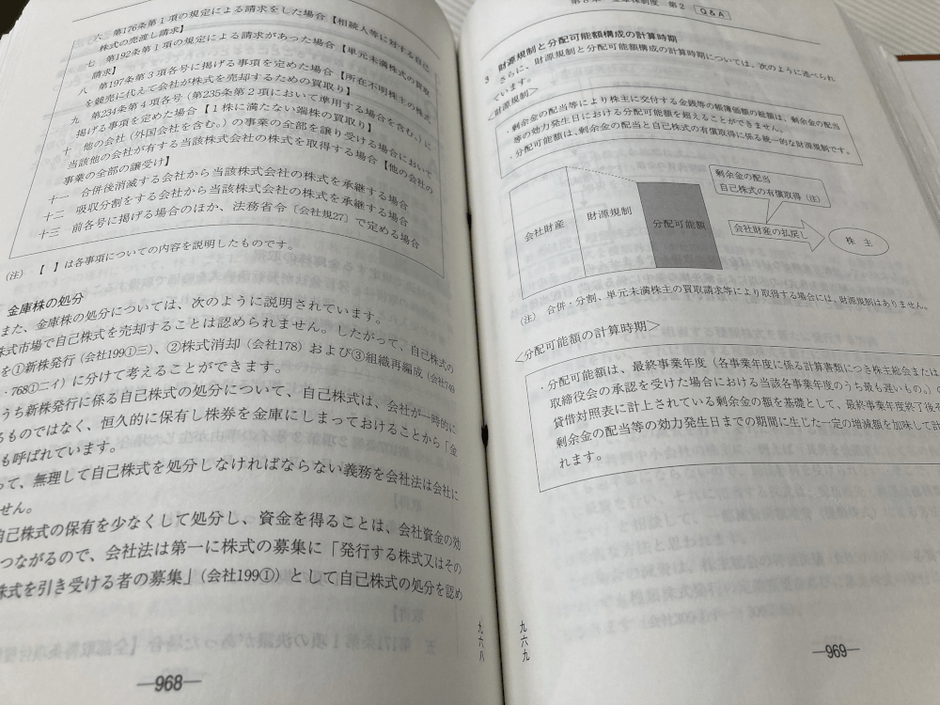 六 第176条第1項の規定による請求をした場合【相続人等に対する自己
株式の売渡し請求】
七 第192条第1項の規定による請求があった場合【単元未満株式の買取
請求】
八 第197条第3項各号に掲げる事項を定めた場合【所在不明株主の株式
を競売に代えて会社が株式を売却するための買取り】
九 第234条第4項各号(第235条第2項において準用する場合を含む。)に
掲げる事項を定めた場合【1株に満たない端株の買取り】
十 他の会社(外国会社を含む。)の事業の全部を譲り受ける場合において
当該他の会社が有する当該株式会社の株式を取得する場合【他の会社の
事業の全部の譲受け】
十一 合併後消滅する会社から当該株式会社の株式を承継する場合
十二 吸収分割をする会社から当該株式会社の株式を承継する場合
十三 前各号に掲げる場合のほか、法務省令〔会社規27〕で定める場合
(注) 【 】は各事項についての内容を説明したものです。
金庫株の処分
また、金庫株の処分については、次のように説明されています。
株式市場で自己株式を売却することは認められません。したがって、自己株式の
を①新株発行(会社199①三)、②株式消却(会社178)および③組織再編成(会社749
・768①二イ)に分けて考えることができます。
うち新株発行に係る自己株式の処分について、自己株式は、会社が一時的に
るものではなく、恒久的に保有し株券を金庫にしまっておけることから「金
も呼ばれています。
って、無理して自己株式を処分しなければならない義務を会社法は会社に
せん。
自己株式の保有を少なくして処分し、資金を得ることは、会社資金の効
つながるので、会社法は第一に株式の募集に「発行する株式又はその
株式を引き受ける者の募集」(会社199①)として自己株式の処分を認め
九六八
―968―
第2 Q&A
3 財源規制と分配可能額構成の計算時期
さらに、財源規制と分配可能額構成の計算時期については、次のように述べられ
ています。
<財源規制>
・剰余金の配当等により株主に交付する金銭等の帳簿価額の総額は、剰余金の配当
等の効力発生日における分配可能額を超えることができません。
・分配可能額は、剰余金の配当と自己株式の有償取得に係る統一的な財源規制です。
会社財産
財源規制
分配可能額
剰余金の配当
自己株式の有償取得(注)
会社財産の払戻し
株 主
(注) 合併・分割、単元未満株主の買取請求等により取得する場合には、財源規制はありません。
<分配可能額の計算時期>
・分配可能額は、最終事業年度(各事業年度に係る計算書類につき株主総会または
取締役会の承認を受けた場合における当該各事業年度のうち最も遅いもの。)の
貸借対照表に計上されている剰余金の額を基礎として、最終事業年度終了後そ
剰余金の配当等の効力発生日までの期間に生じた一定の増減額を加味して計
れます。
九六九
―969―